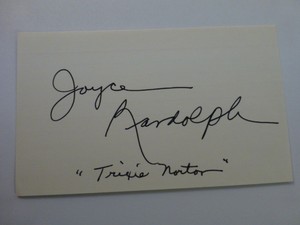 Joyce
Randolph
"Trixie Norton"